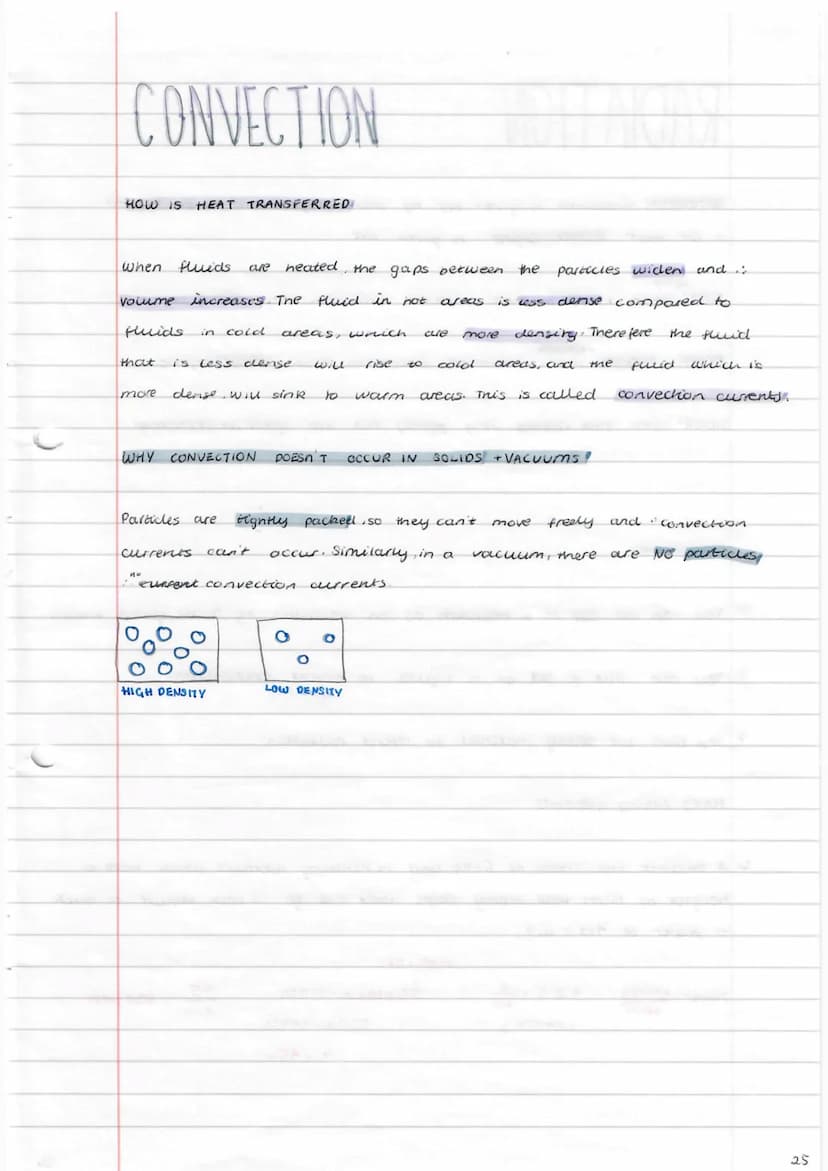 CONVECTION
HOW IS HEAT TRANSFERRED
When fluids are heated, the gaps between the particles widen and ∴
volume increases. The fluid in hot areas is less dense compared to
fluids in cold areas, which are more density. Therefere the fluid
that is less dense will rise to cold areas, and the fluid which is
more dense, will sink to warm areas. This is called convection currents.
WHY CONVECTION DOESN'T OCCUR IN SOLIDS + VACUUMS?
Particles are tightly packed, so they can't move freely and ∴ convection
currents can't occur. Similarly, in a vacuum, there are NO particles,
∴ "no" current convection currents.
HIGH DENSITY
LOW DENSITY
25